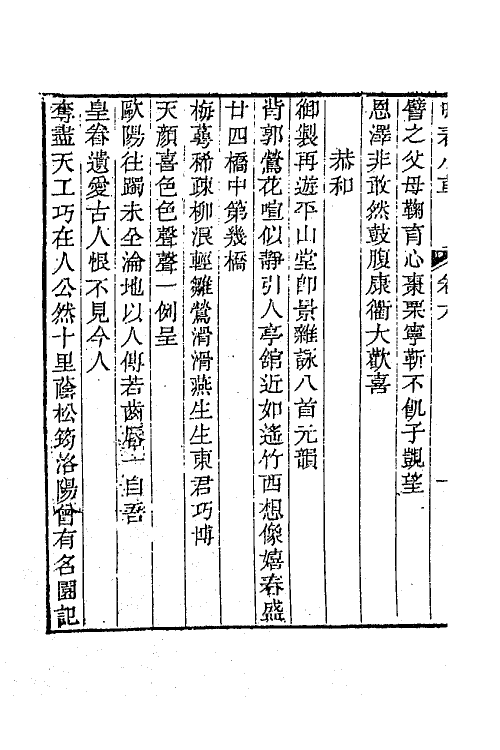 譬之父母鞠育心棗栗寧靳不飢子覬望
恩澤非敢然鼓腹康衢大歡喜
恭和
御製再遊平山堂卽景雜詠八首元韻
背郭鶯花喧似靜引人亭舘近如遙竹西想像嬉春盛
廿四橋中第幾橋
梅蕚稀疎柳浪輕雛鶯滑滑燕生生東君巧博
天顏喜色色聲聲一例呈
歐陽往躅未全淪地以人傳若齒脣一自吾
皇眷遺愛古人恨不見今人
奪盡天工巧在人公然十里蔭松筠洛陽曾有名園記